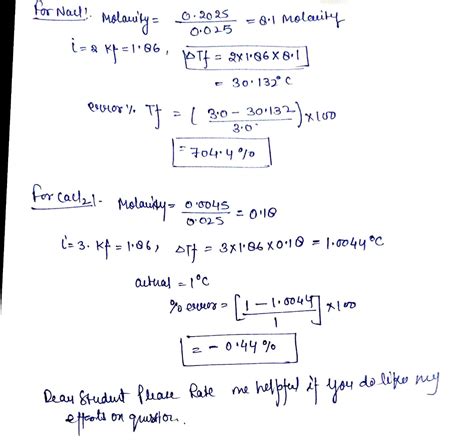 for Nacl: Molarity = 0.2025 / 0.025 = 8.1 Molarity
i = 2 Kf = 1.86, ΔTf = 2x1.86x8.1
= 30.132°C
error % Tf = (3.0 - 30.132 / 3.0) x100
= 704.4 %
for cacl2 | - Molarity = 0.0045 / 0.025 = 0.18
i = 3. Kf = 1.86, ΔTf = 3x1.86x0.18 = 1.0044°C
actual = 1°C
% error = [1 - 1.0044 / 1] x100
= - 0.44 %
Dear Student Please Rate me helpful if you do like my
efforts on question.